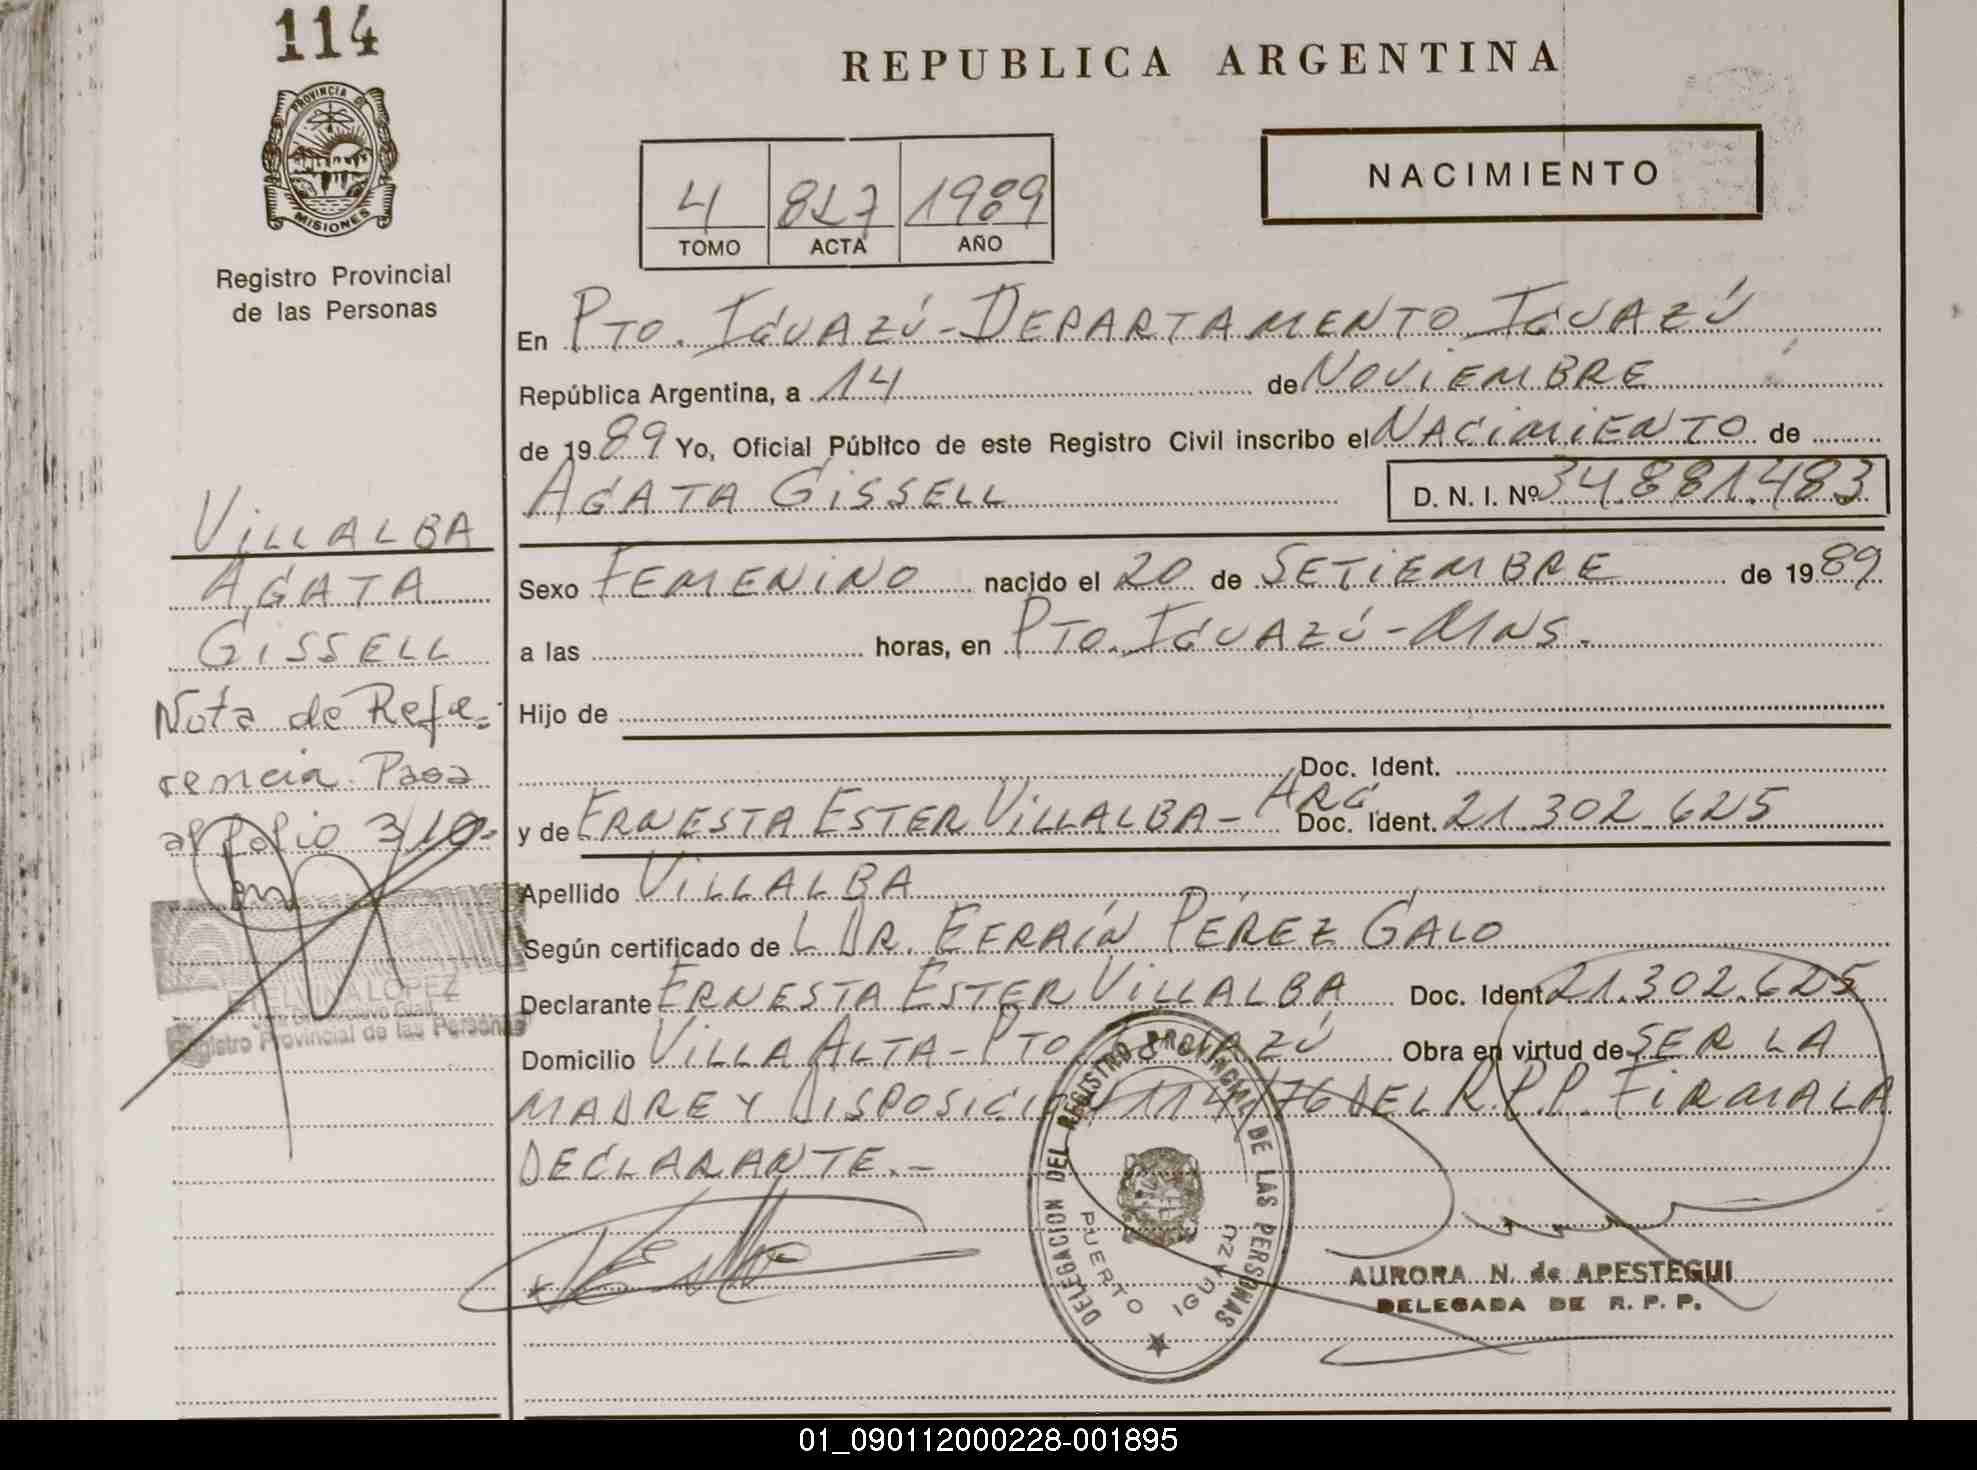 114
PROVINCIA DE
MISIONES
Registro Provincial
de las Personas
REPUBLICA ARGENTINA
NACIMIENTO
4 827 1989
TOMO ACTA AÑO
En PTO. IGUAZÚ - DEPARTAMENTO IGUAZÚ
República Argentina, a 14 de NOVIEMBRE
de 1989 Yo, Oficial Público de este Registro Civil inscribo el NACIMIENTO de
AGATA GISSELL D. N. I. Nº 34.881.483
Sexo FEMENINO nacido el 20 de SETIEMBRE de 1989
a las horas, en PTO. IGUAZÚ - MNS.
Hijo de
Doc. Ident.
y de ERNESTA ESTER VILLALBA - ARG. Doc. Ident. 21.302.625
Apellido VILLALBA
Según certificado de L DR. EFRAÍN PÉREZ GALO
Declarante ERNESTA ESTER VILLALBA Doc. Ident. 21.302.625
Domicilio VILLA ALTA - PTO IGUAZÚ Obra en virtud de SER LA
MADRE Y DISPOSICION 114/76 DEL R.P.P. FIRMA LA
DECLARANTE. -
VILLALBA
AGATA
GISSELL
Nota de Refe-
rencia. Pasa
al folio 3/10-
ELVINA LOPEZ
Registro Provincial de las Personas
DELEGACION DEL REGISTRO PROVINCIAL DE LAS PERSONAS
PUERTO IGUAZU
AURORA N. de APESTEGUI
DELEGADA DE R. P. P.
01_090112000228-001895